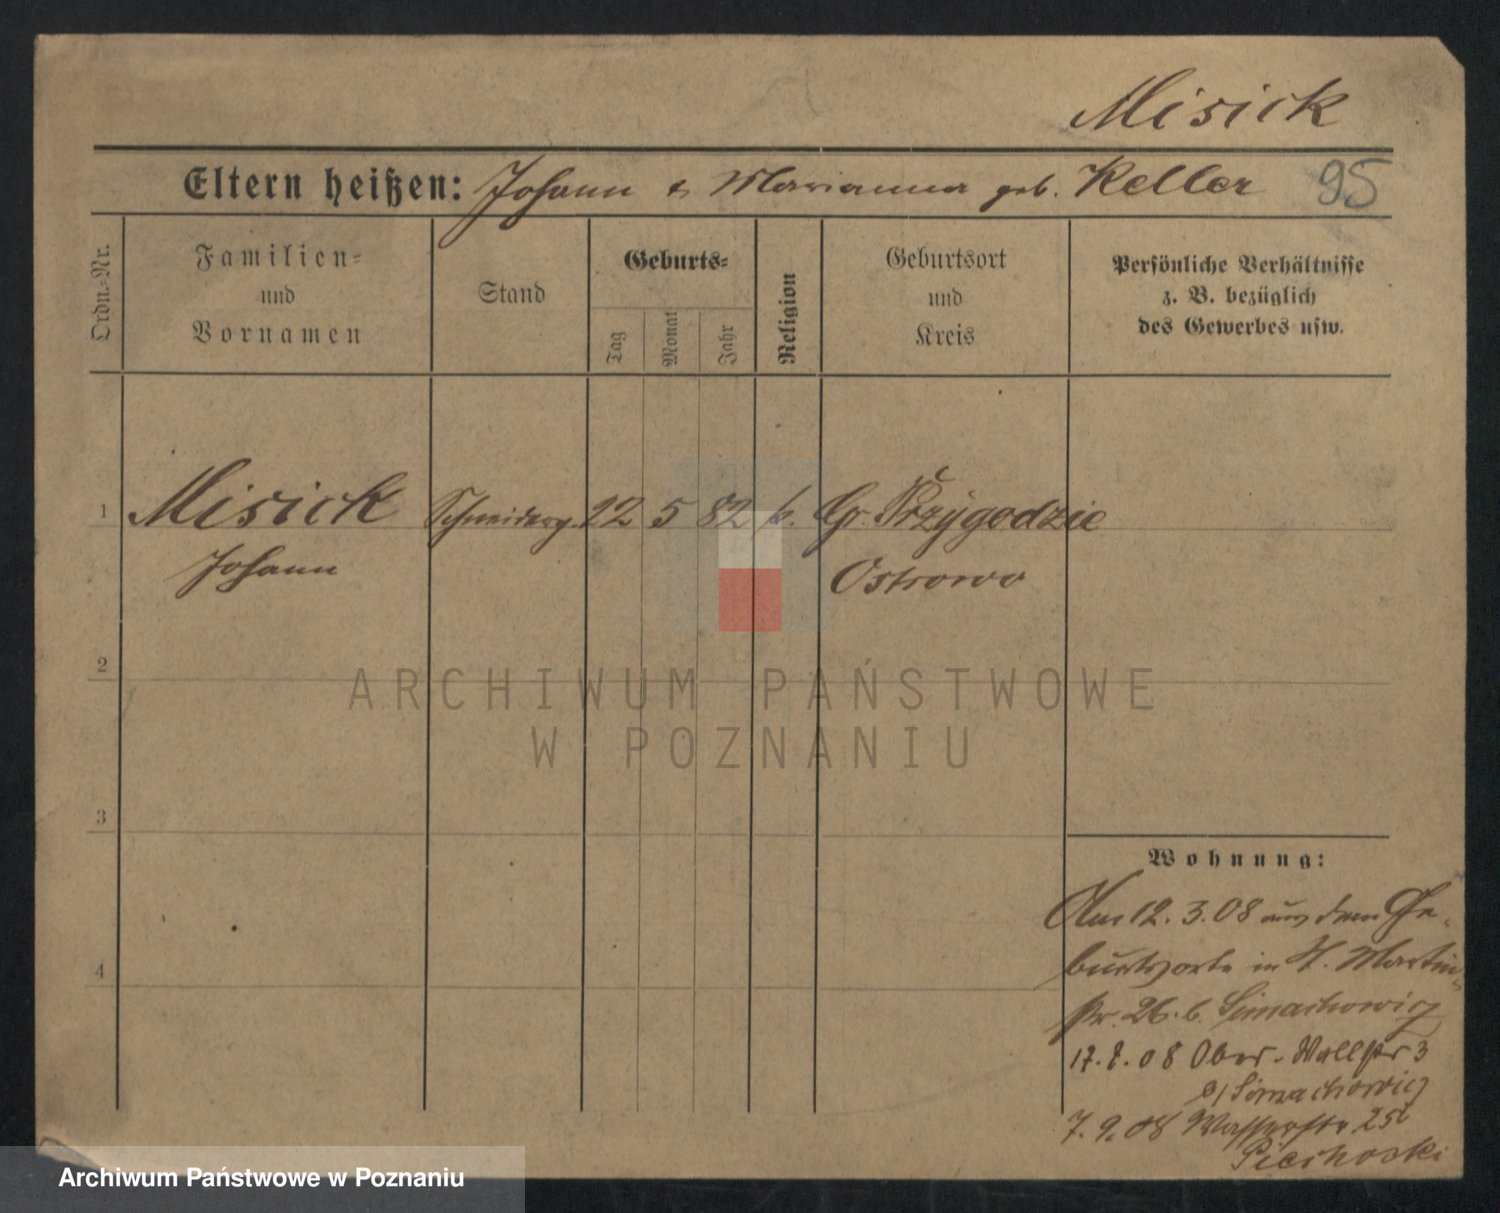 Misick
Eltern heißen: Johann & Marianna geb. Keller 95
Ordn.-Nr.
Familien-
und
Vornamen
Stand
Geburts-
Tag
Monat
Jahr
Religion
Geburtsort
und
Kreis
Persönliche Verhältnisse
z. B. bezüglich
des Gewerbes usw.
1 Misick Schneiderg. 12 5 82 k. Gr. Przygodzie
Johann Ostrowo
2
ARCHIWUM PAŃSTWOWE
W POZNANIU
3
Wohnung:
Am 12. 3. 08 aus dem Ge-
burtsorte in St. Martin-
str. 26. b. Simachowicz
4
17. 8. 08 Ober-Wallstr 3
b/ Simachowicz
7. 9. 08 Wasserstr. 25
Piechoski
Archiwum Państwowe w Poznaniu